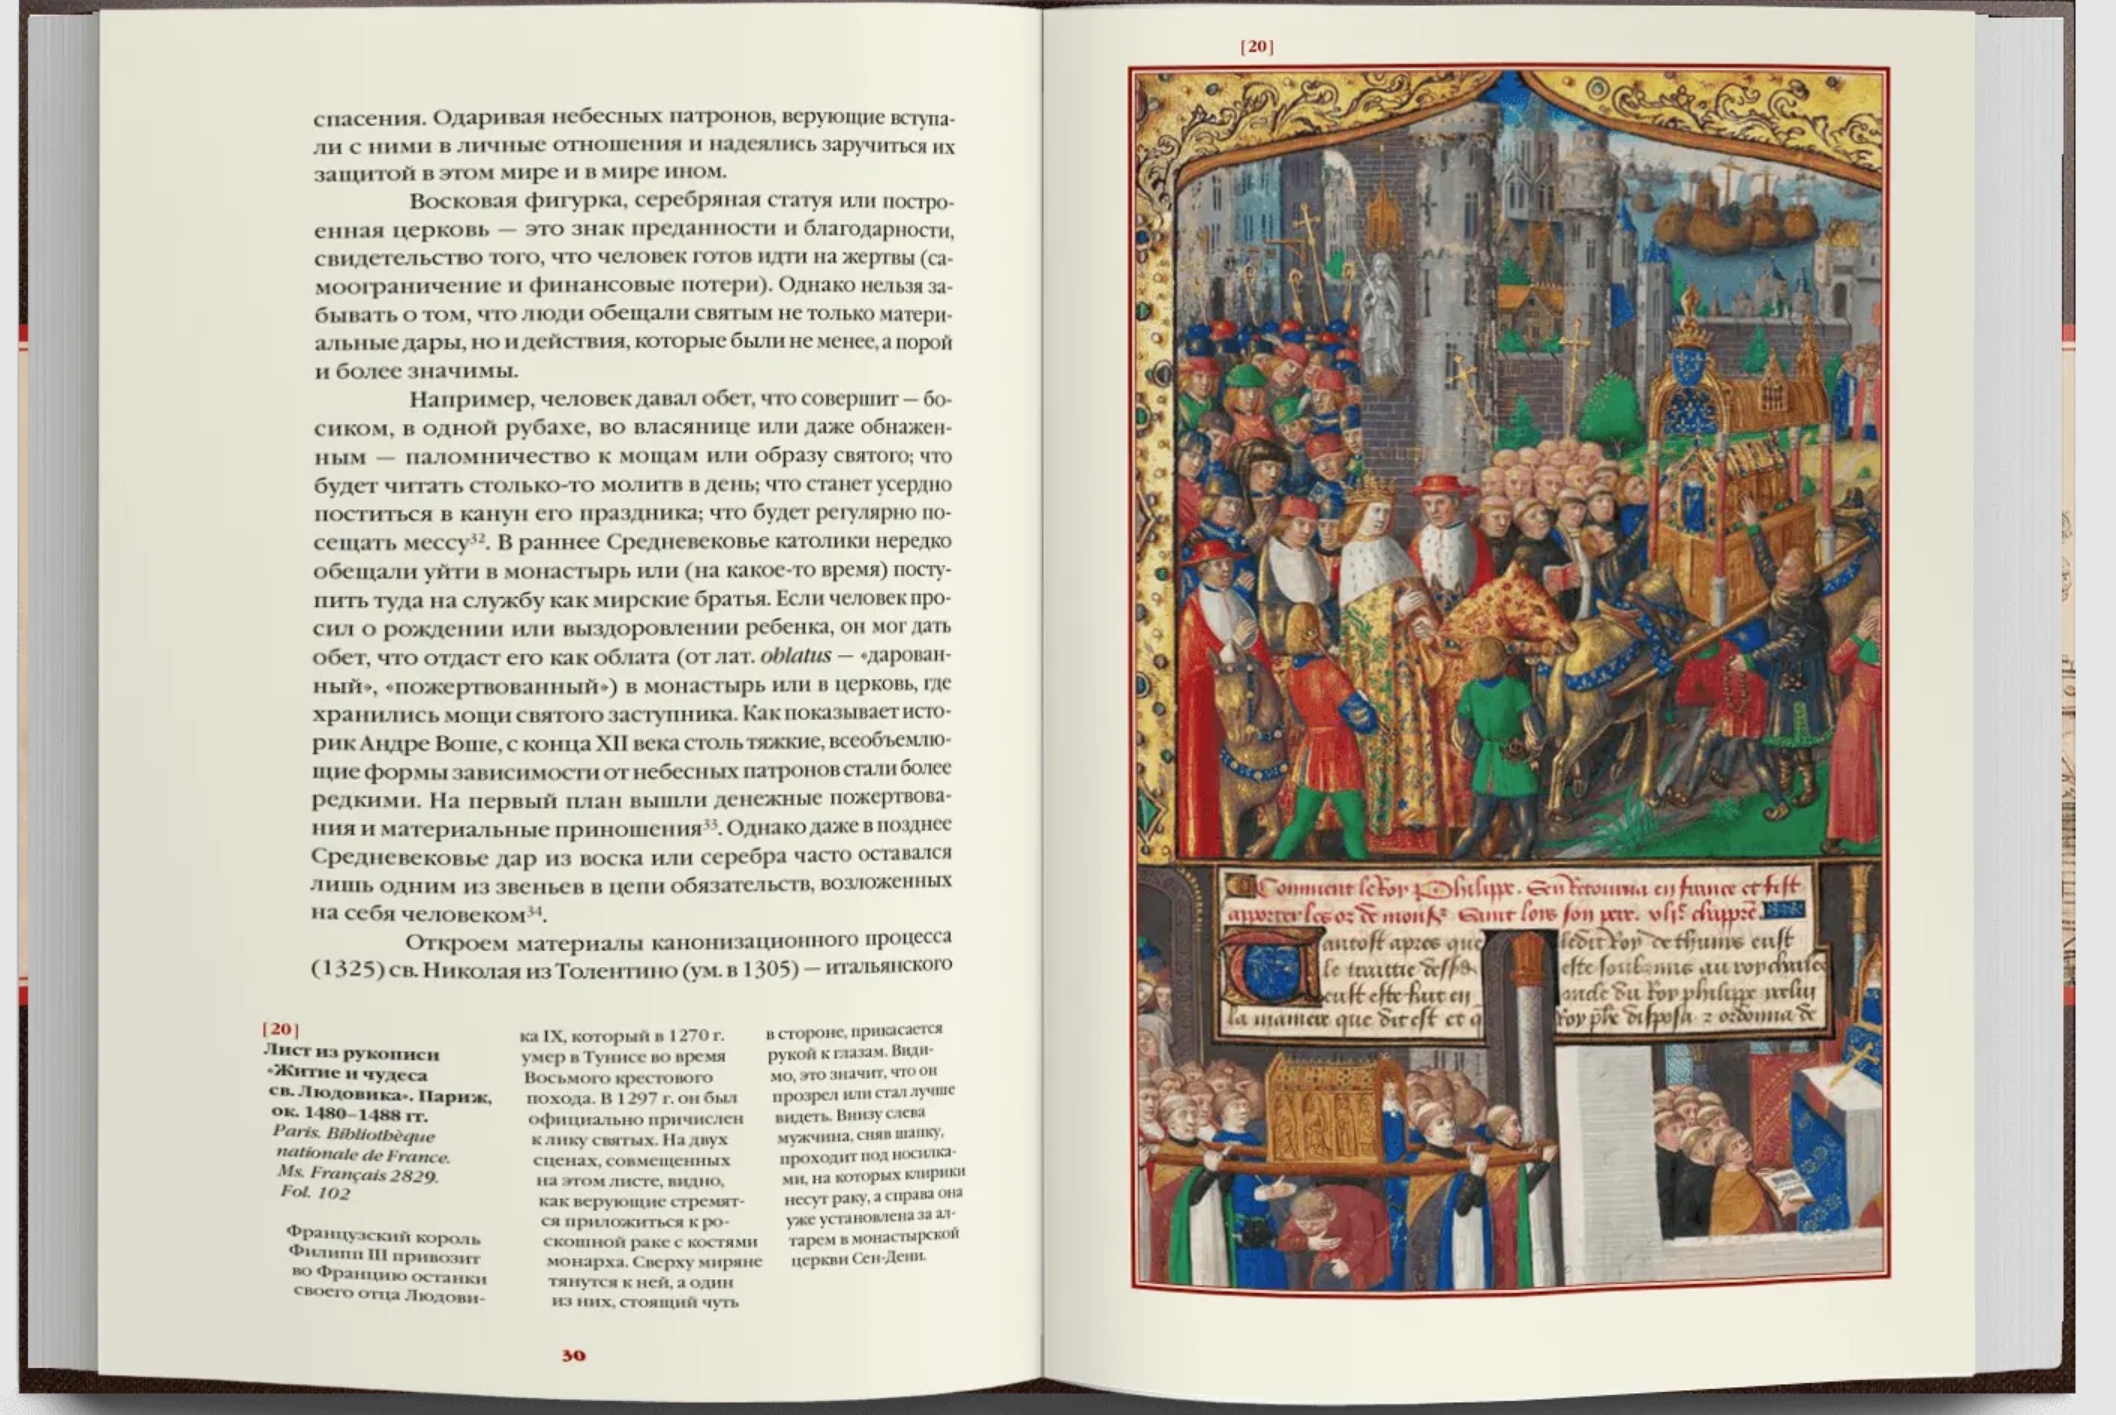 спасения. Одаривая небесных патронов, верующие вступа-
ли с ними в личные отношения и надеялись заручиться их
защитой в этом мире и в мире ином.
Восковая фигурка, серебряная статуя или постро-
енная церковь — это знак преданности и благодарности,
свидетельство того, что человек готов идти на жертвы (са-
моограничение и финансовые потери). Однако нельзя за-
бывать о том, что люди обещали святым не только матери-
альные дары, но и действия, которые были не менее, а порой
и более значимы.
Например, человек давал обет, что совершит — бо-
сиком, в одной рубахе, во власянице или даже обнажен-
ным — паломничество к мощам или образу святого; что
будет читать столько-то молитв в день; что станет усердно
поститься в канун его праздника; что будет регулярно по-
сещать мессу³². В раннее Средневековье католики нередко
обещали уйти в монастырь или (на какое-то время) посту-
пить туда на службу как мирские братья. Если человек про-
сил о рождении или выздоровлении ребенка, он мог дать
обет, что отдаст его как облата (от лат. oblatus — «дарован-
ный», «пожертвованный») в монастырь или в церковь, где
хранились мощи святого заступника. Как показывает исто-
рик Андре Воше, с конца XII века столь тяжкие, всеобъемлю-
щие формы зависимости от небесных патронов стали более
редкими. На первый план вышли денежные пожертвова-
ния и материальные приношения³³. Однако даже в позднее
Средневековье дар из воска или серебра часто оставался
лишь одним из звеньев в цепи обязательств, возложенных
на себя человеком³⁴.
Откроем материалы канонизационного процесса
(1325) св. Николая из Толентино (ум. в 1305) — итальянского
[20]
Лист из рукописи
«Житие и чудеса
св. Людовика». Париж,
ок. 1480–1488 гг.
Paris. Bibliothèque
nationale de France.
Ms. Français 2829.
Fol. 102
Французский король
Филипп III привозит
во Францию останки
своего отца Людови-
ка IX, который в 1270 г.
умер в Тунисе во время
Восьмого крестового
похода. В 1297 г. он был
официально причислен
к лику святых. На двух
сценах, совмещенных
на этом листе, видно,
как верующие стремят-
ся приложиться к ро-
скошной раке с костями
монарха. Сверху миряне
тянутся к ней, а один
из них, стоящий чуть
в стороне, прикасается
рукой к глазам. Види-
мо, это значит, что он
прозрел или стал лучше
видеть. Внизу слева
мужчина, сняв шапку,
проходит под носилка-
ми, на которых клирики
несут раку, а справа она
уже установлена за ал-
тарем в монастырской
церкви Сен-Дени.
30
[20]
Comment le Roy Phelippe. Sen retourna en france et fist
apporter les os de monsr Saint loys son pere. chappre
Tantost apres que ledit Roy de thunes eust
le traittie este soubzmis au roy charles
eust este fait en oncle du Roy philippe
la maniere que dit est et q Roy phe disposa ordonna de